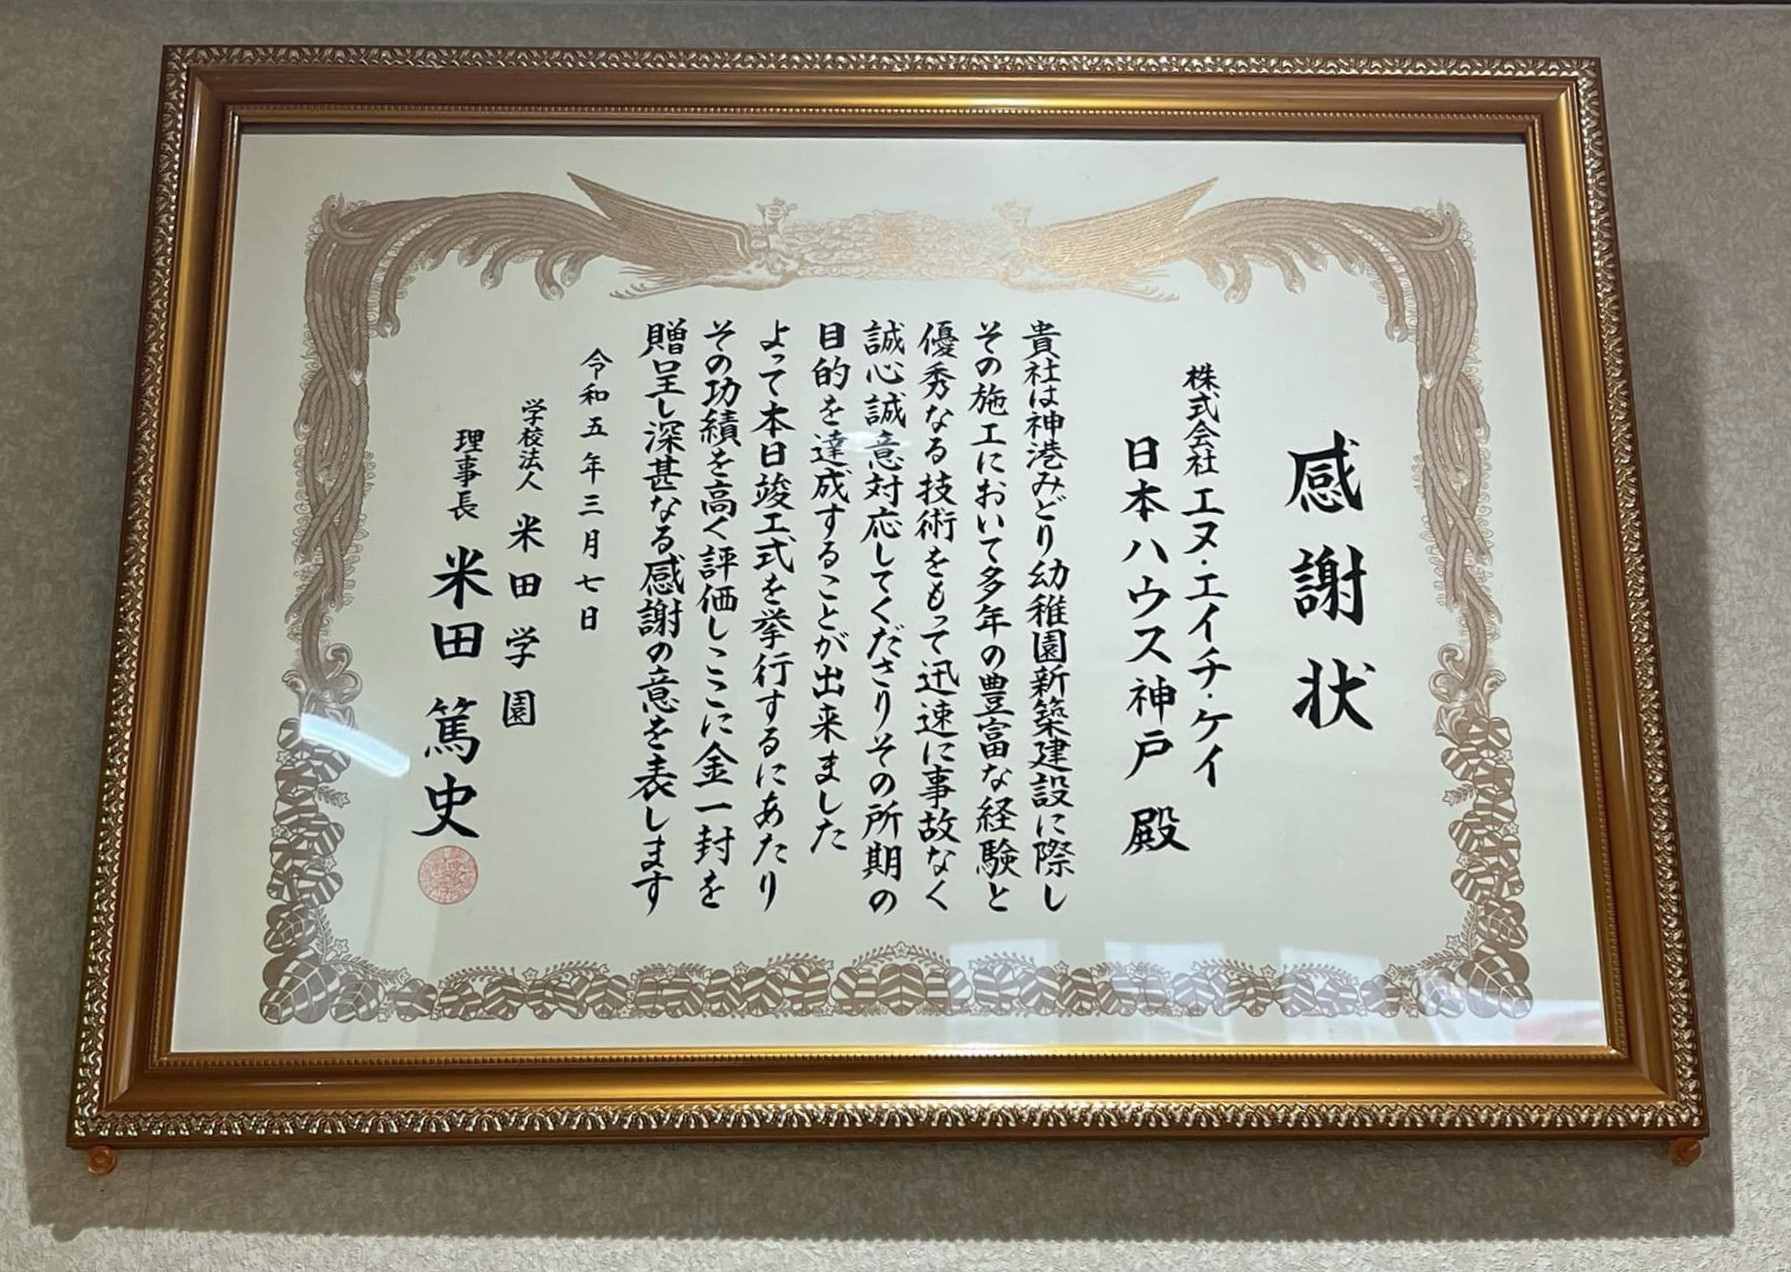 感謝状
株式会社 エヌ・エイチ・ケイ
日本ハウス神戸 殿
貴社は神港みどり幼稚園新築建設に際し
その施工において多年の豊富な経験と
優秀なる技術をもって迅速に事故なく
誠心誠意対応してくださりその所期の
目的を達成することが出来ました
よって本日竣工式を挙行するにあたり
その功績を高く評価しここに金一封を
贈呈し深甚なる感謝の意を表します
令和五年三月七日
学校法人 米田学園
理事長 米田篤史